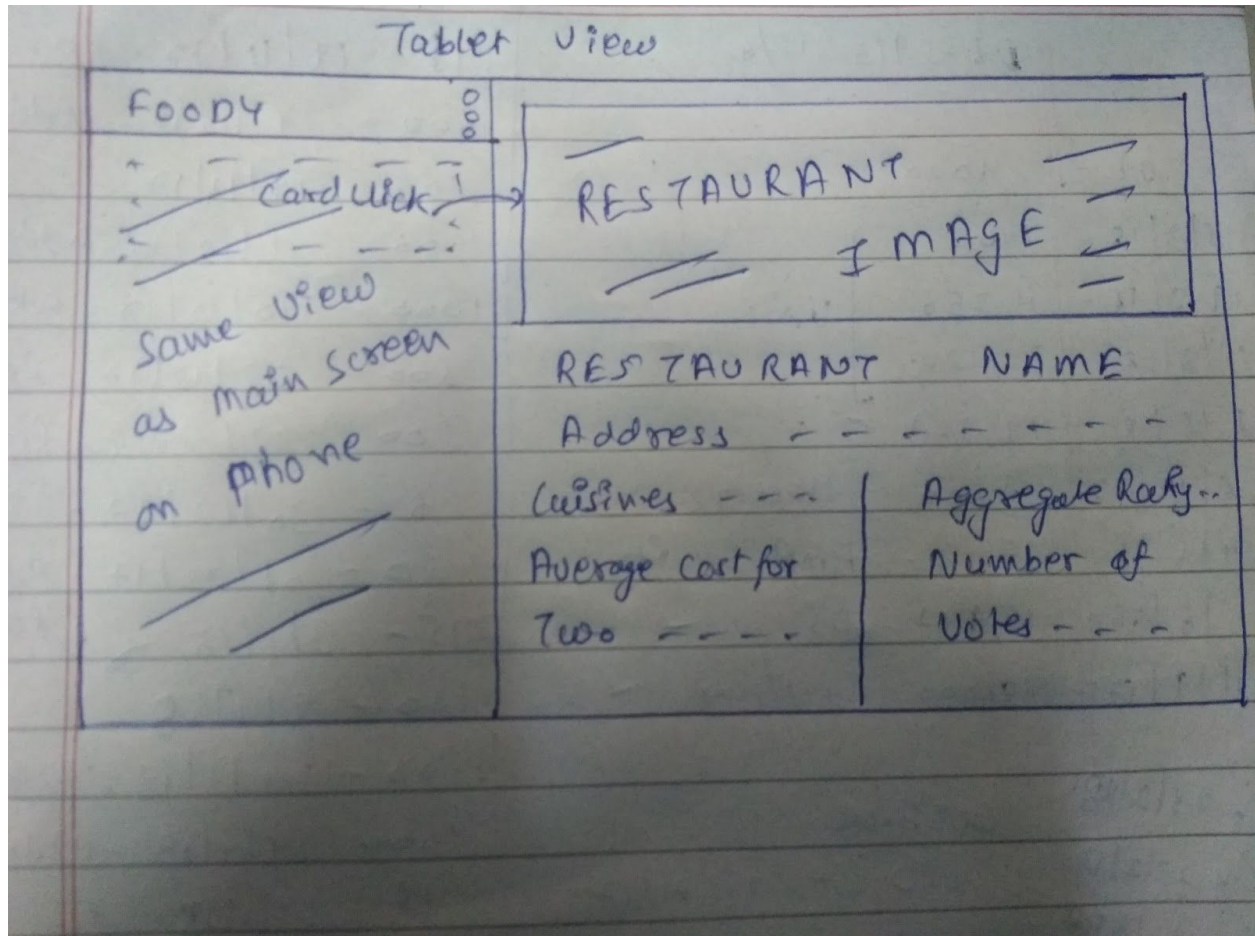 Tablet View
FOODY
Card Click
Same View
as main screen
on phone
RESTAURANT
IMAGE
RESTAURANT NAME
Address - - - - - - -
Cuisines - - - -
Average Cost for
Two - - - -
Aggregate Rating..
Number of
Votes - - -